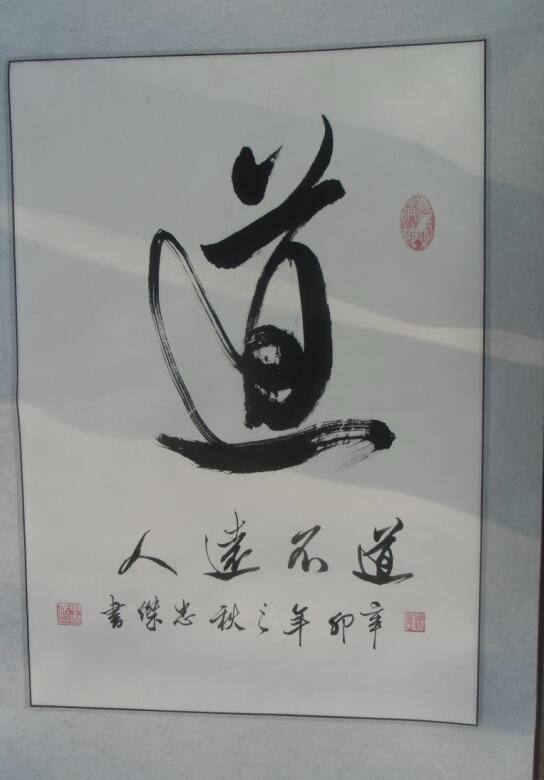 道
道不遠人
辛卯年之秋忠傑書